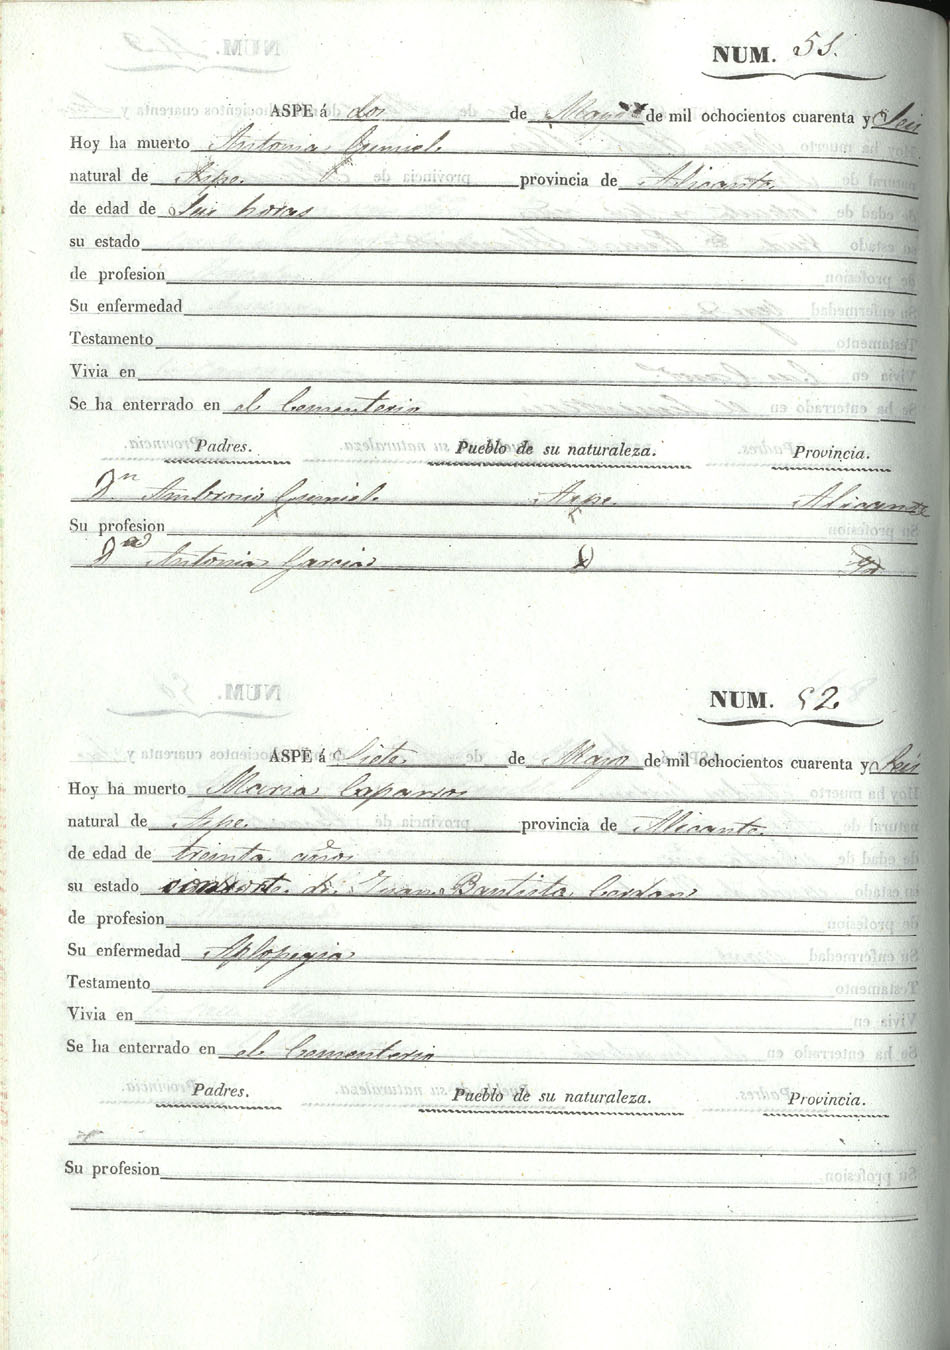 NUM. 51.
ASPE á dos de Mayo de mil ochocientos cuarenta y Seis
Hoy ha muerto Antonia Gumiel
natural de Aspe. provincia de Alicante
de edad de Seis horas
su estado
de profesion
Su enfermedad
Testamento
Vivia en
Se ha enterrado en el Cementerio
Padres. Pueblo de su naturaleza. Provincia.
Dn Ambrosio Gumiel Aspe. Alicante
Su profesion
Da Antonia Garcia
NUM. 52.
ASPE á Siete de Mayo de mil ochocientos cuarenta y Seis
Hoy ha muerto Maria Caparros
natural de Aspe. provincia de Alicante.
de edad de treinta años
su estado consorte de Juan Bautista Cerdan
de profesion
Su enfermedad Aplopegia
Testamento
Vivia en
Se ha enterrado en el Cementerio
Padres. Pueblo de su naturaleza. Provincia.
Su profesion